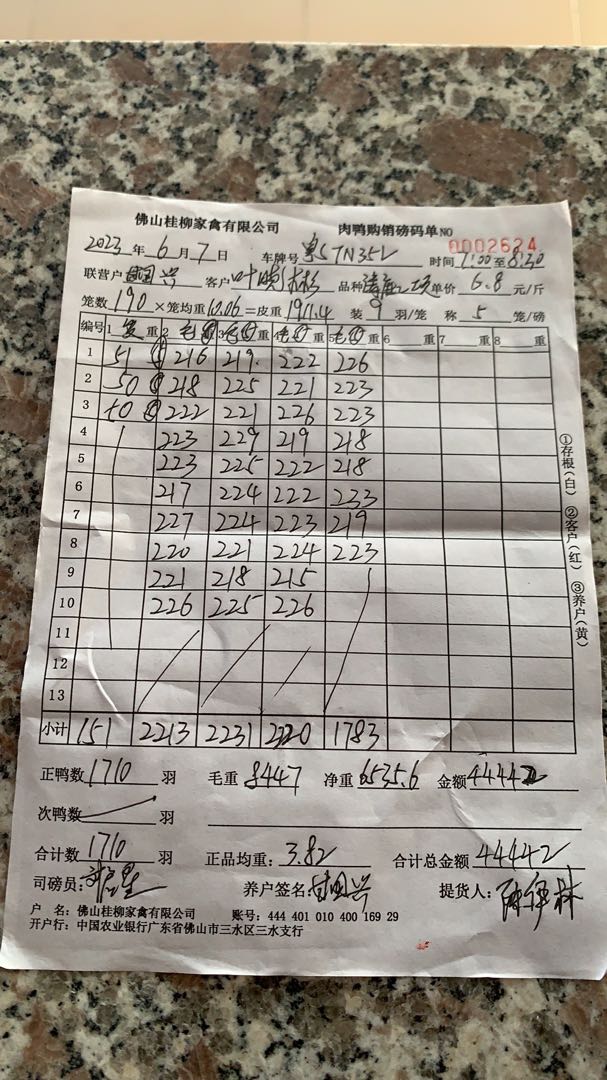 佛山桂柳家禽有限公司 肉鸭购销磅码单NO 0002624
2023 年 6 月 7 日 车牌号 时间 1:00 至 8:30
联营户 客户 叶 品种 单价 6.8 元/斤
笼数 190 ×笼均重 10.06 =皮重 1911.4 装 9 羽/笼 称 5 笼/磅
编号 1 重 2 毛 重 3 毛 重 4 毛 重 5 毛 重 6 重 7 重 8 重
1 51 216 219. 222 226
2 50 218 225 221 223
3 50 222 221 226 223
4 223 229 219 218
5 223 225 222 218
6 217 224 222 233
7 227 224 223 219
8 220 221 224 223
9 221 218 215
10 226 225 226
11
12
13
小计 151 2213 2231 2220 1783
正鸭数 1710 羽 毛重 8447 净重 6535.6 金额 44442
次鸭数 羽
合计数 1710 羽 正品均重: 3.82 合计总金额 44442
司磅员: 养户签名: 提货人:
户 名: 佛山桂柳家禽有限公司 账号: 444 401 010 400 169 29
开户行: 中国农业银行广东省佛山市三水区三水支行
①存根(白) ②客户(红) ③养户(黄)